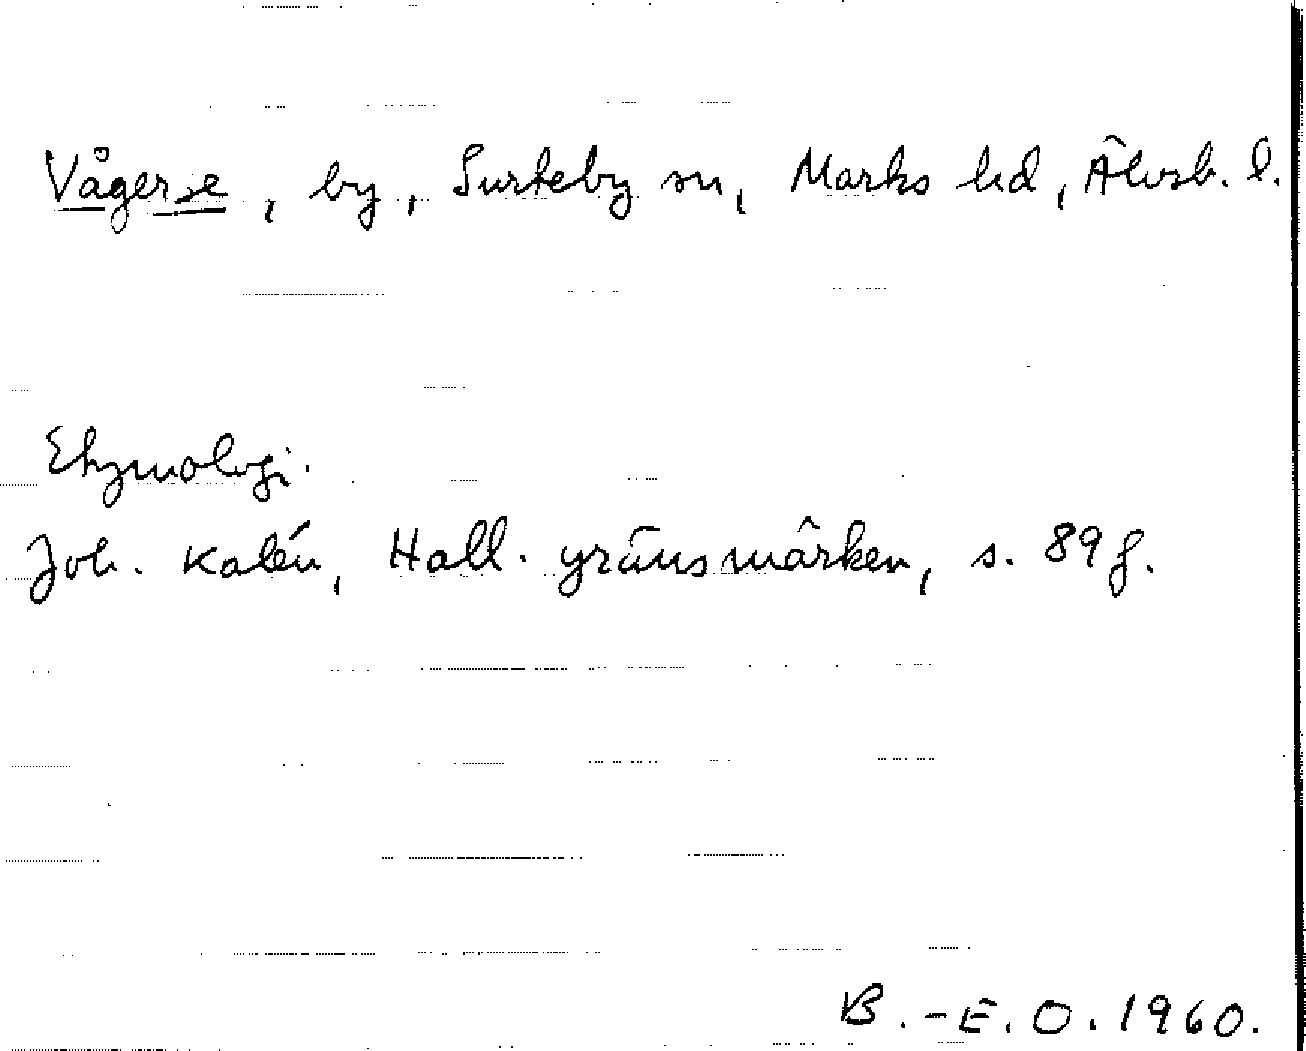 Vågerse, by, Surteby sn, Marks hd, Älvsb. l.
Etymologi.
Joh. Kalén, Hall. gränsmärken, s. 89 f.
B.-E. O. 1960.